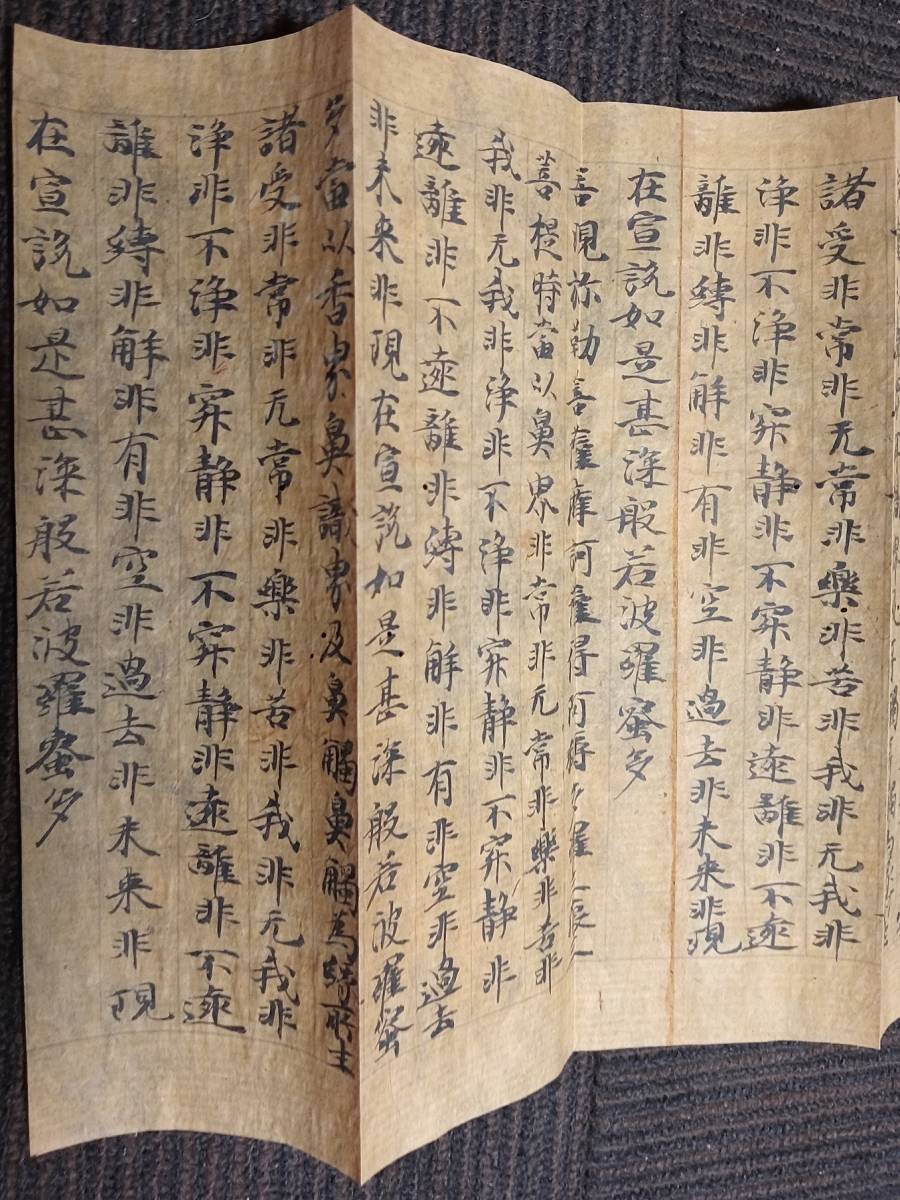 諸受非常非无常非樂非苦非我非元我非
浄非不浄非寂静非不寂静非遠離非不遠
離非縛非解非有非空非過去非未来非現
在宣説如是甚深般若波羅蜜多
善現弥勒菩薩摩訶薩得阿耨多羅
菩提時當以鼻界非常非无常非樂非苦非
我非无我非浄非不浄非寂静非不寂静非
遠離非不遠離非縛非解非有非空非過去
非未来非現在宣説如是甚深般若波羅蜜
多當以香界鼻識界及鼻觸鼻觸為縁所生
諸受非常非元常非樂非苦非我非元我非
浄非不浄非寂静非不寂静非遠離非不遠
離非縛非解非有非空非過去非未来非現
在宣説如是甚深般若波羅蜜多